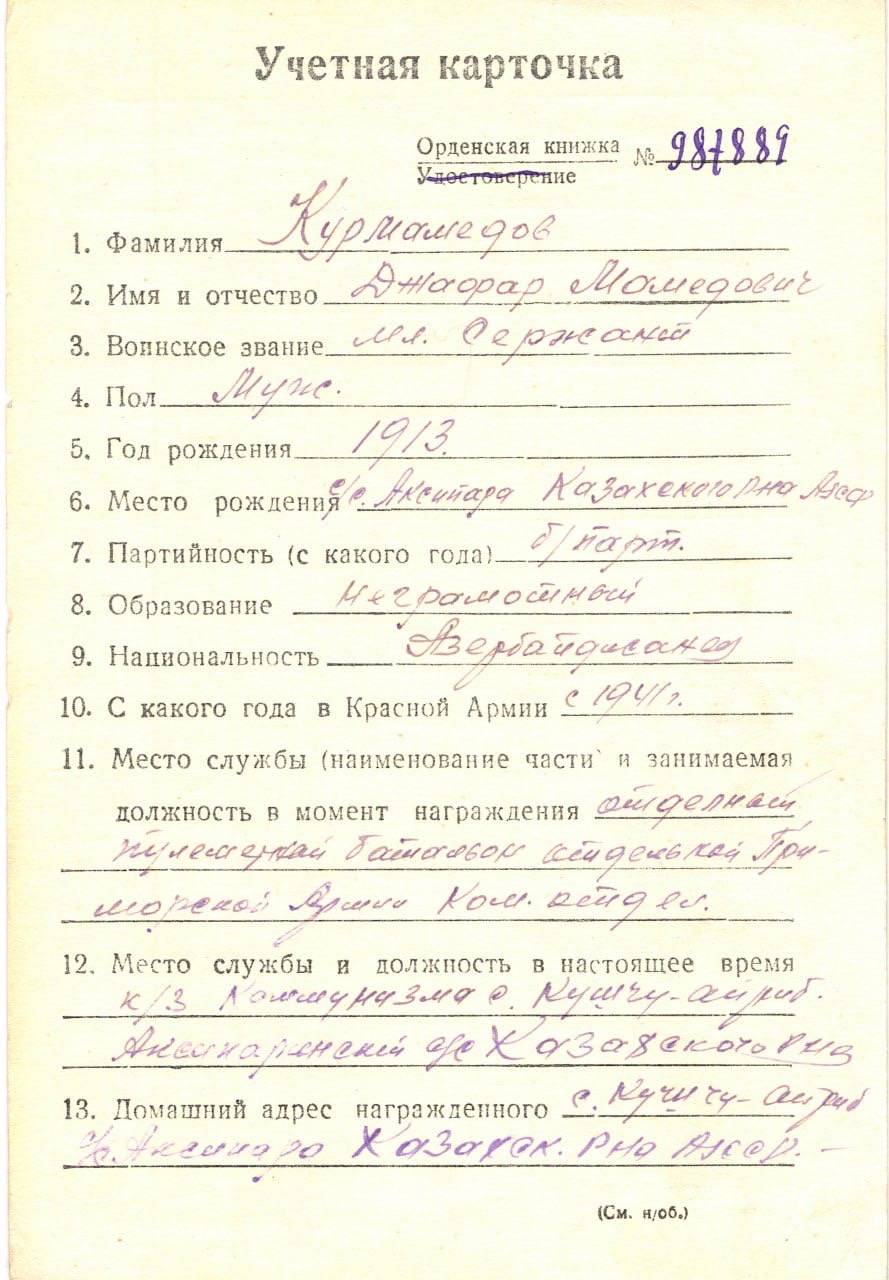 Учетная карточка
Орденская книжка № 987889
Удостоверение
1. Фамилия Курмамедов
2. Имя и отчество Джафар Мамедович
3. Воинское звание мл. Сержант
4. Пол Муж.
5. Год рождения 1913.
6. Место рождения с/с. Аксипара Казахского р-на АзССР
7. Партийность (с какого года) б/парт.
8. Образование неграмотный
9. Национальность Азербайджанец
10. С какого года в Красной Армии с 1941 г.
11. Место службы (наименование части и занимаемая
должность в момент награждения отделный
пулеметный баталъон отделъной При-
морской Армии Ком. отдел.
12. Место службы и должность в настоящее время
к/з Коммунизма с. Кушчу-айриб.
Аксипаринский с/с Казахского р-на
13. Домашний адрес награжденного с. Кушчу-айриб
с/с. Аксипара Казахск. р-на АзССР. -
(См. н/об.)